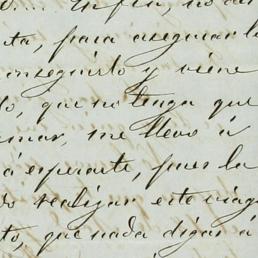 En fin, no
ta, para asegurar l
conseguirlo y viene
lo, que no tenga que
mar, me llevo á
á esperarte, pues la
do realizar este viag
to, que nada digas á